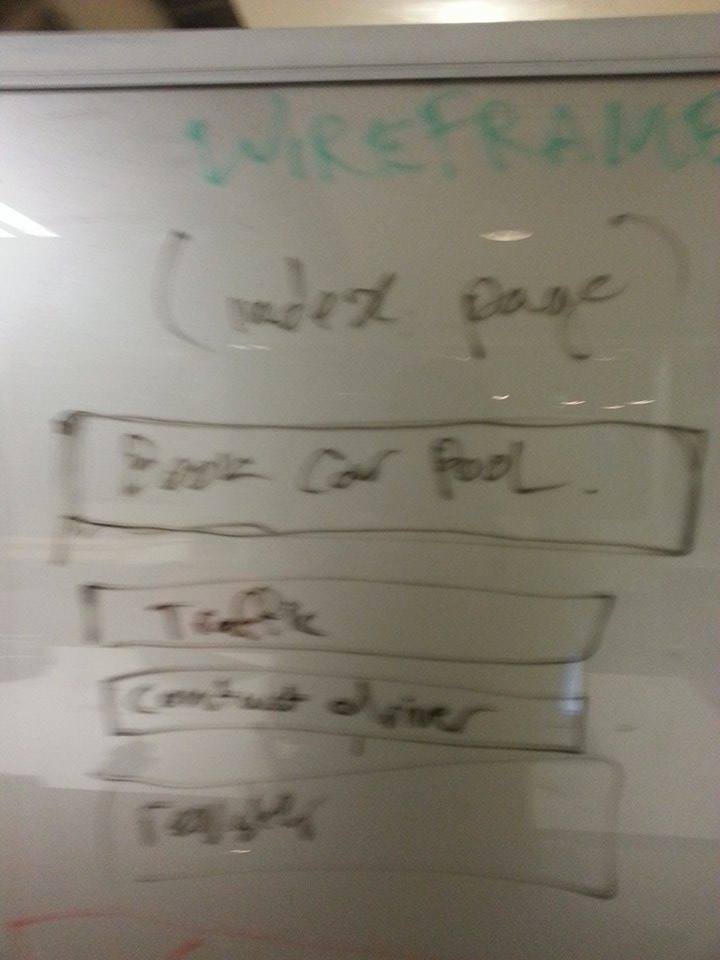 WIREFRAME
(index page)
Book Car Pool.
Traffic
Contact driver